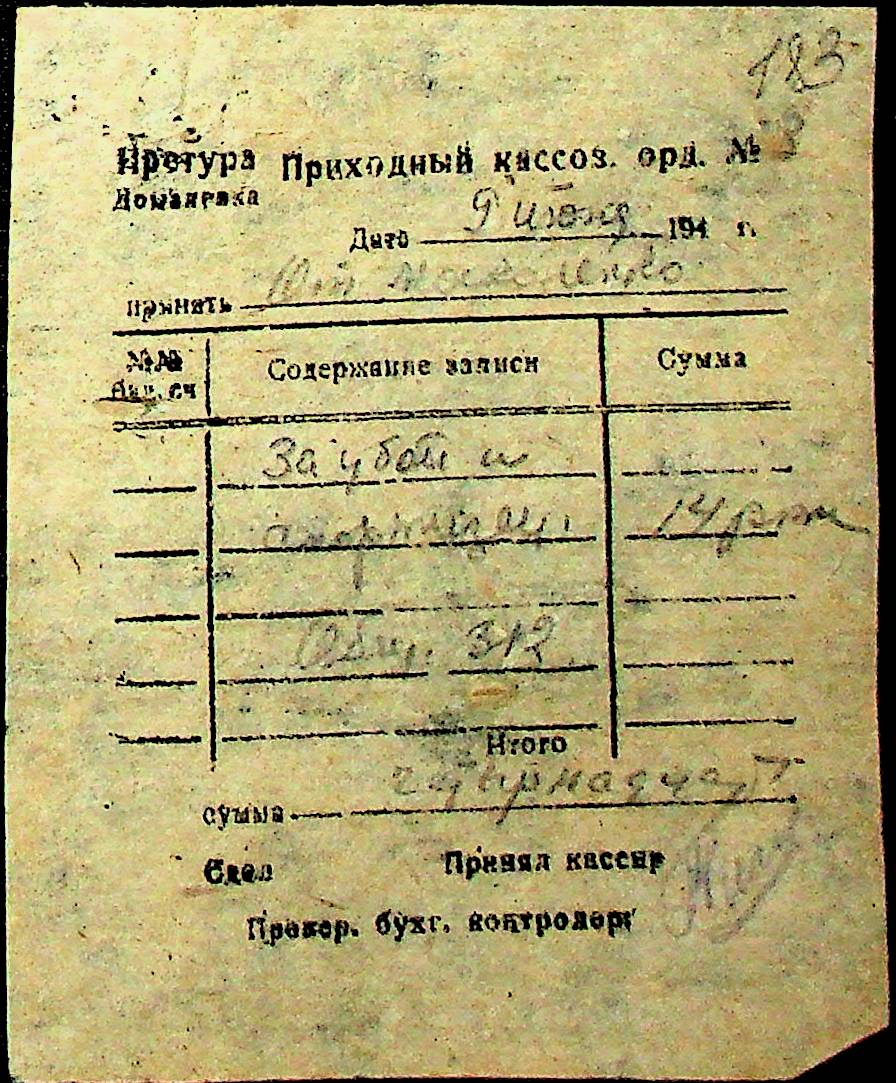 183
Претура Приходный кассов. орд. №
Доманевка
Дата 9 июня 194 г.
принять От
№№ Содержание записи Сумма
За убой и
14 рм
312
Итого
сумма четырнадцать
Сдал Принял кассир
Провер. бухг. контролер